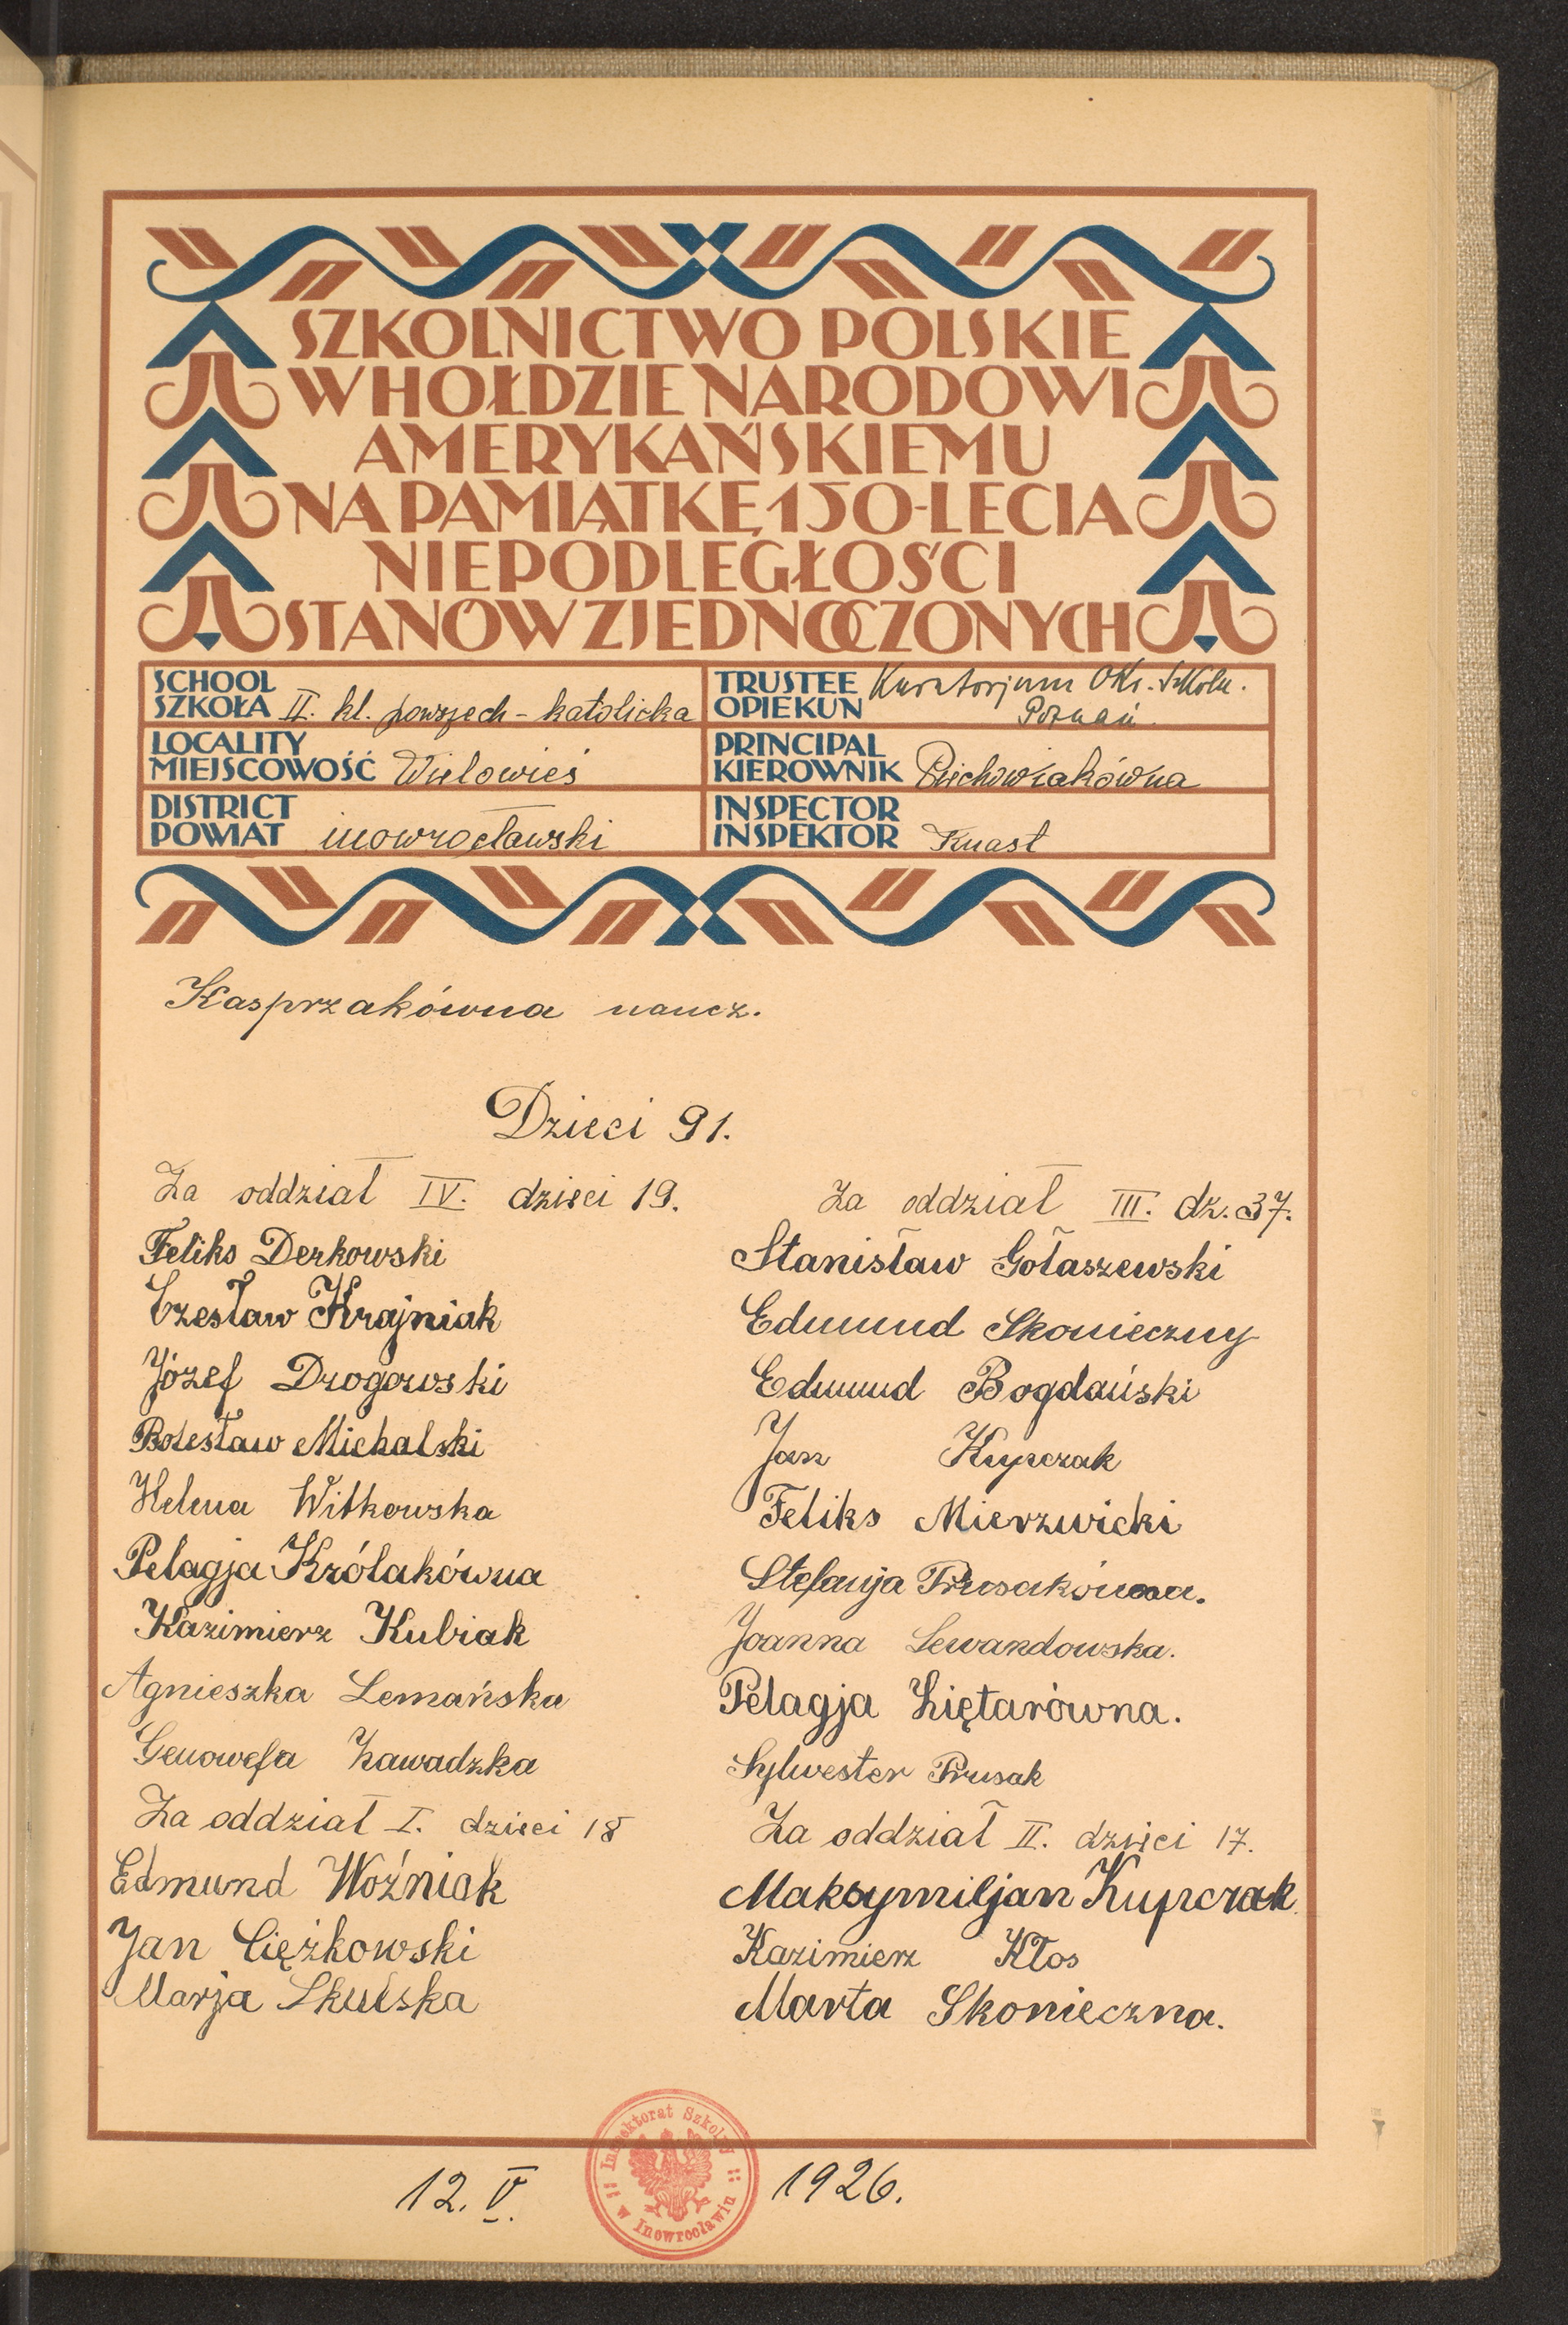 SZKOLNICTWO POLSKIE
W HOŁDZIE NARODOWI
AMERYKAŃSKIEMU
NA PAMIĄTKĘ 150-LECIA
NIEPODLEGŁOŚCI
STANÓW ZJEDNOCZONYCH
SCHOOL
SZKOŁA II. kl. powszech - katolicka
TRUSTEE Kuratorjum Okr. Szkoln.
OPIEKUN Poznań
LOCALITY
MIEJSCOWOŚĆ Wielowieś
PRINCIPAL
KIEROWNIK Piechowiakówna
DISTRICT
POWIAT inowrocławski
INSPECTOR
INSPEKTOR Knast
Kasprzakówna naucz.
Dzieci 91.
Za oddział IV. dzieci 19.
Feliks Derkowski
Czesław Krajniak
Józef Drogowski
Bolesław Michalski
Helena Witkowska
Pelagja Królakówna
Kazimierz Kubiak
Agnieszka Lemańska
Genowefa Zawadzka
Za oddział I. dzieci 18
Edmund Woźniak
Jan Ciężkowski
Marja Skulska
Za oddział III. dz. 37.
Stanisław Gołaszewski
Edmund Skonieczny
Edmund Bogdański
Jan Kupczak
Feliks Mierzwicki
Stefanja Prusakówna.
Joanna Lewandowska.
Pelagja Ziętarówna.
Sylwester Prusak
Za oddział II. dzieci 17.
Maksymiljan Kupczak.
Kazimierz Kłos
Marta Skonieczna.
12. V. 1926.
Inspektorat Szkolny
w Inowrocławiu